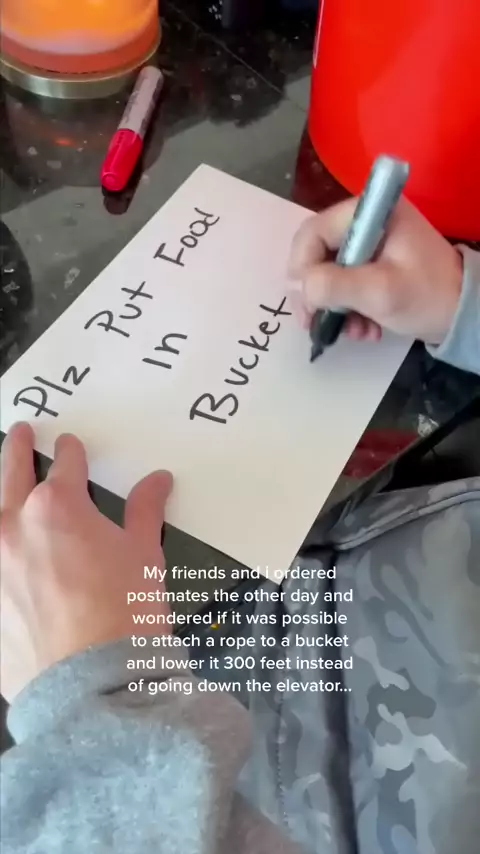 Plz Put Food
in
Bucket
My friends and i ordered
postmates the other day and
wondered if it was possible
to attach a rope to a bucket
and lower it 300 feet instead
of going down the elevator...